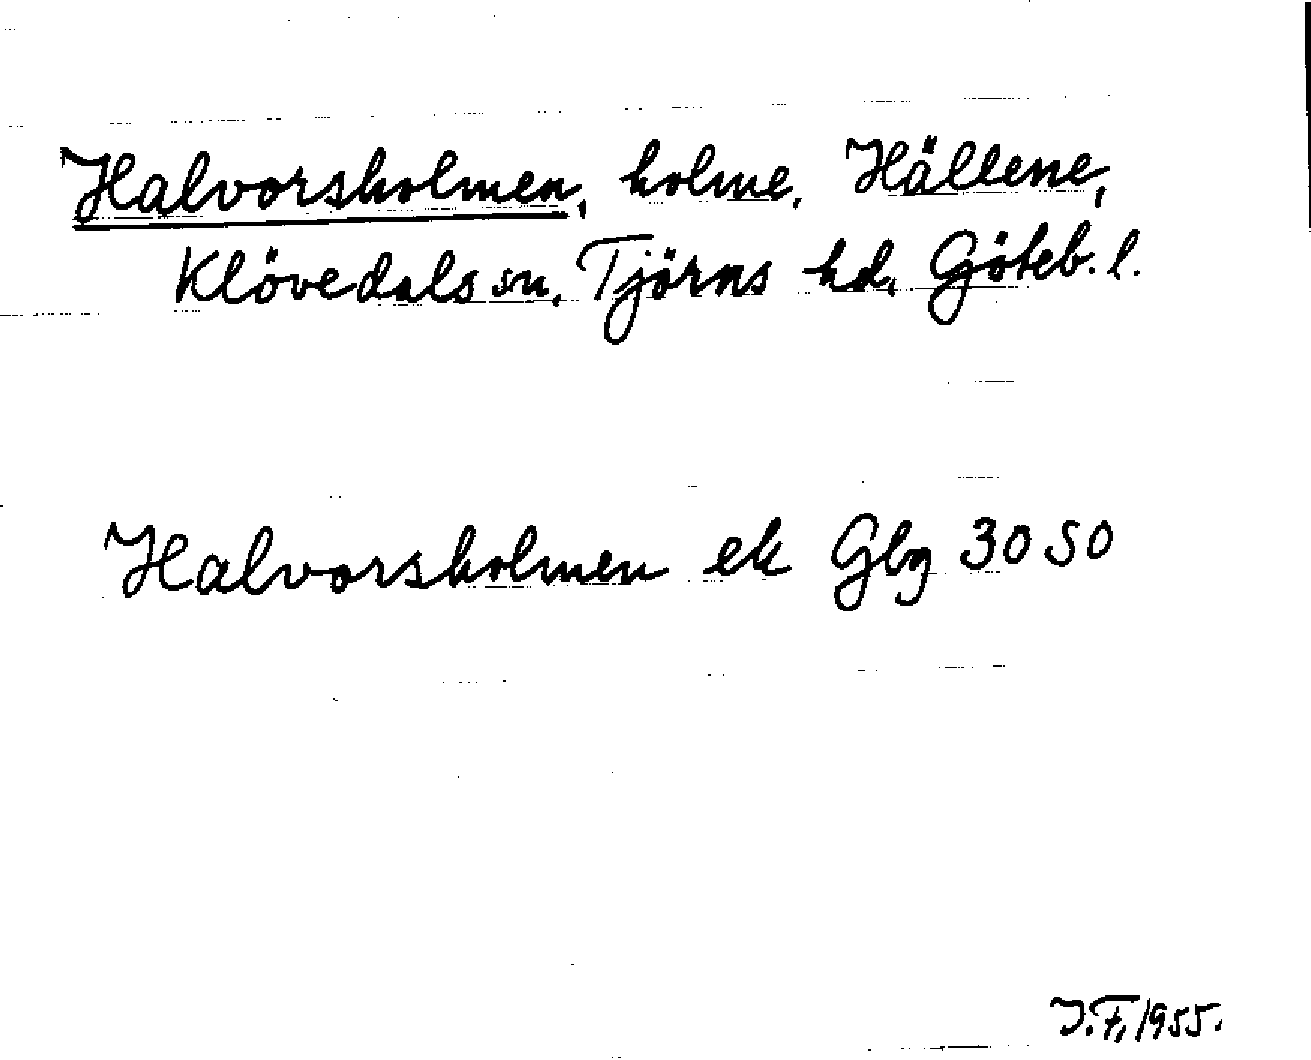 Halvorsholmen, holme, Hällene,
Klövedals sn, Tjörns hd, Göteb. l.
Halvorsholmen ek Gbg 3050
J.F. 1955.